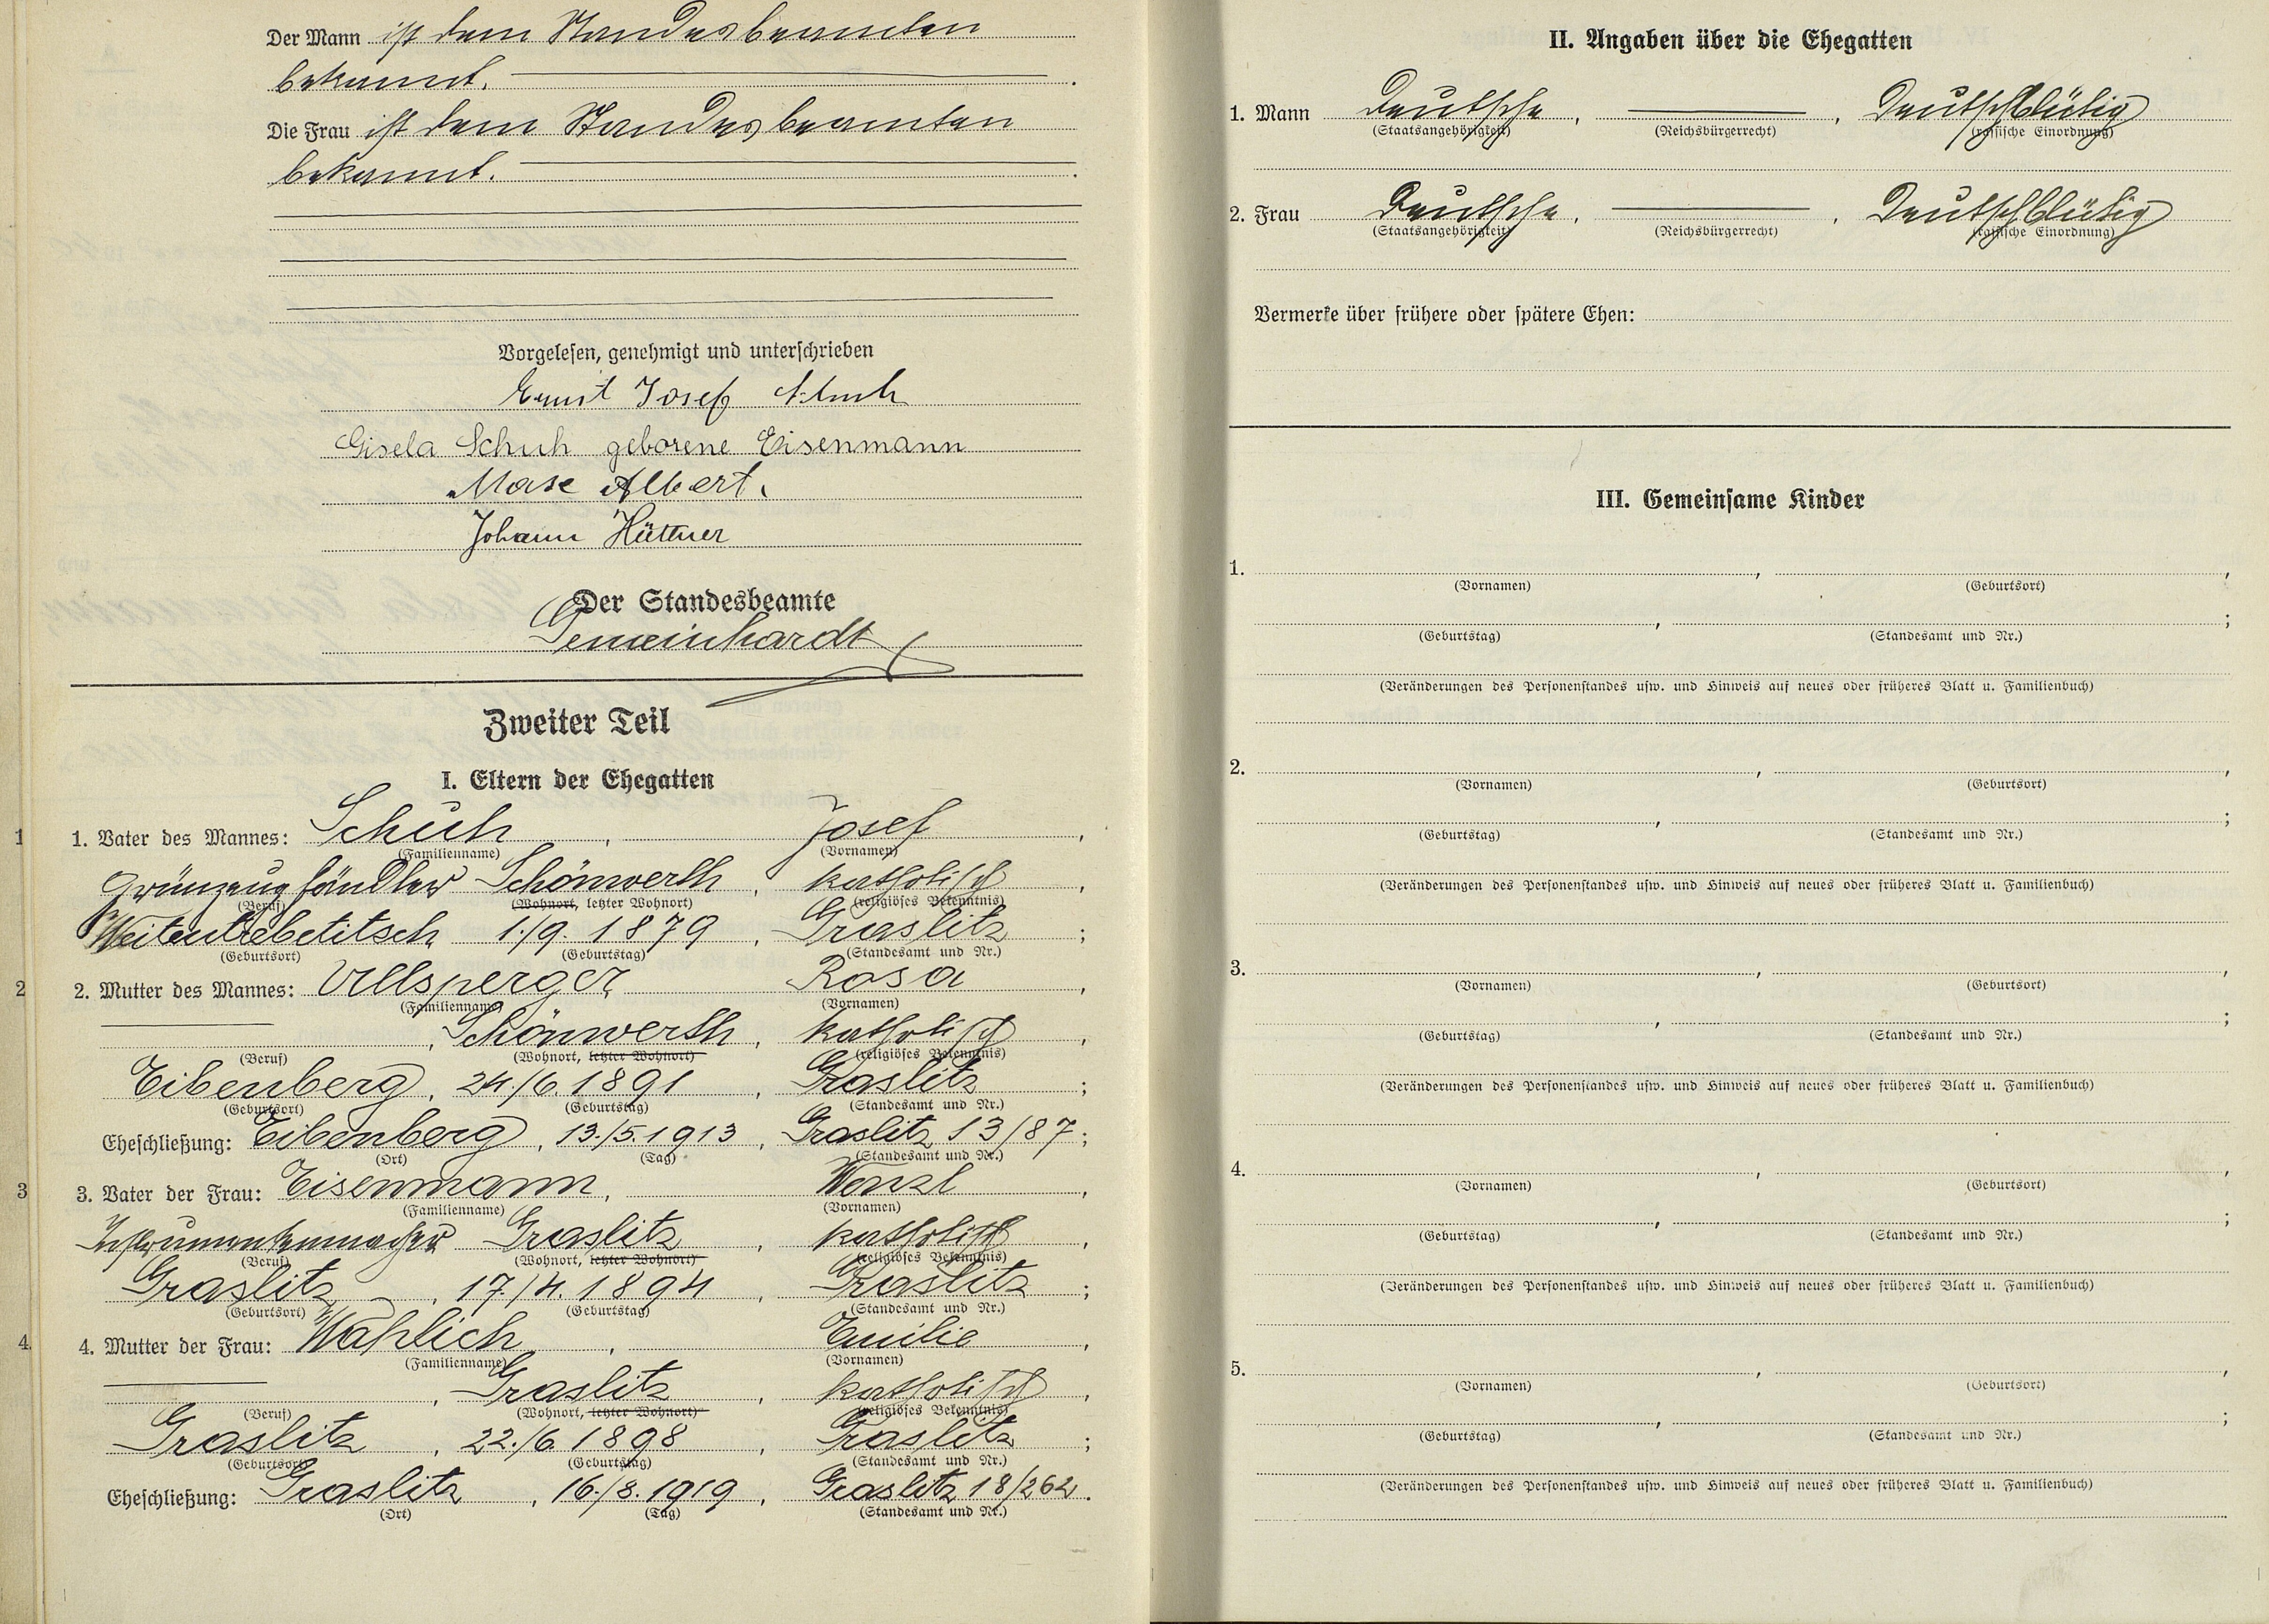 Der Mann ist dem Standesbeamten
bekannt.
Die Frau ist dem Standesbeamten
bekannt.
Vorgelesen, genehmigt und unterschrieben
Ernst Josef Schuh
Gisela Schuh geborene Eisenmann
Mase Albert.
Johann Hüttner
Der Standesbeamte
Gemeinhardt
Zweiter Teil
I. Eltern der Ehegatten
1 1. Vater des Mannes: Schuh, Josef,
(Familienname) (Vornamen)
Grünzeughändler Schönwerth, katholisch,
(Beruf) (Wohnort, letzter Wohnort) (religiöses Bekenntnis)
Weitentrebetitsch 1./9. 1879, Graslitz;
(Geburtsort) (Geburtstag) (Standesamt und Nr.)
2 2. Mutter des Mannes: Ullsperger, Rosa,
(Familienname) (Vornamen)
, Schönwerth, katholisch,
(Beruf) (Wohnort, letzter Wohnort) (religiöses Bekenntnis)
Eibenberg, 24./6. 1891, Graslitz;
(Geburtsort) (Geburtstag) (Standesamt und Nr.)
Eheschließung: Eibenberg, 13./5. 1913, Graslitz 13/87;
(Ort) (Tag) (Standesamt und Nr.)
3 3. Vater der Frau: Eisenmann, Wenzl,
(Familienname) (Vornamen)
Instrumentenmacher Graslitz, katholisch,
(Beruf) (Wohnort, letzter Wohnort) (religiöses Bekenntnis)
Graslitz, 17./4. 1894, Graslitz;
(Geburtsort) (Geburtstag) (Standesamt und Nr.)
4 4. Mutter der Frau: Wahlich, Emilie,
(Familienname) (Vornamen)
, Graslitz, katholisch,
(Beruf) (Wohnort, letzter Wohnort) (religiöses Bekenntnis)
Graslitz, 22./6. 1898, Graslitz;
(Geburtsort) (Geburtstag) (Standesamt und Nr.)
Eheschließung: Graslitz, 16./8. 1919, Graslitz 18/262.
(Ort) (Tag) (Standesamt und Nr.)
II. Angaben über die Ehegatten
1. Mann Deutsche, , Deutschblütig
(Staatsangehörigkeit) (Reichsbürgerrecht) (rassische Einordnung)
2. Frau Deutsche, , Deutschblütig
(Staatsangehörigkeit) (Reichsbürgerrecht) (rassische Einordnung)
Vermerke über frühere oder spätere Ehen:
III. Gemeinsame Kinder
1. , ,
(Vornamen) (Geburtsort)
, ;
(Geburtstag) (Standesamt und Nr.)
(Veränderungen des Personenstandes usw. und Hinweis auf neues oder früheres Blatt u. Familienbuch)
2. , ,
(Vornamen) (Geburtsort)
, ;
(Geburtstag) (Standesamt und Nr.)
(Veränderungen des Personenstandes usw. und Hinweis auf neues oder früheres Blatt u. Familienbuch)
3. , ,
(Vornamen) (Geburtsort)
, ;
(Geburtstag) (Standesamt und Nr.)
(Veränderungen des Personenstandes usw. und Hinweis auf neues oder früheres Blatt u. Familienbuch)
4. , ,
(Vornamen) (Geburtsort)
, ;
(Geburtstag) (Standesamt und Nr.)
(Veränderungen des Personenstandes usw. und Hinweis auf neues oder früheres Blatt u. Familienbuch)
5. , ,
(Vornamen) (Geburtsort)
, ;
(Geburtstag) (Standesamt und Nr.)
(Veränderungen des Personenstandes usw. und Hinweis auf neues oder früheres Blatt u. Familienbuch)